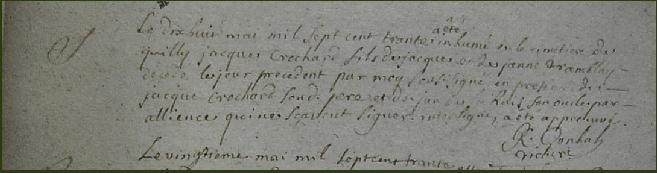 a été
Le dixhuit mai mil sept cent trante inhumé en le cimetiere de
quilly jacques Crochard fils de jacques et de janne tramblay
decede le jour precedent par moy soussigné en presence de
jacque Crochard son pere et de jan son oncle par
allience qui ne scavent signer interligne a été approuvé.
R.
vicaire
Le vingtieme mai mil sept cent trante